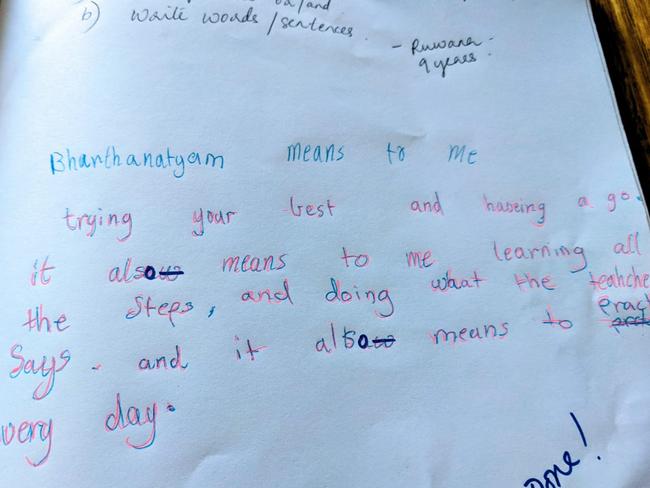 b) Write words / sentences.
- Ruwana -
9 years.
Bharthanatyam means to me
trying your best and haveing a go.
it also means to me learning all
the steps, and doing what the teahche
Says. and it also means to
very day.